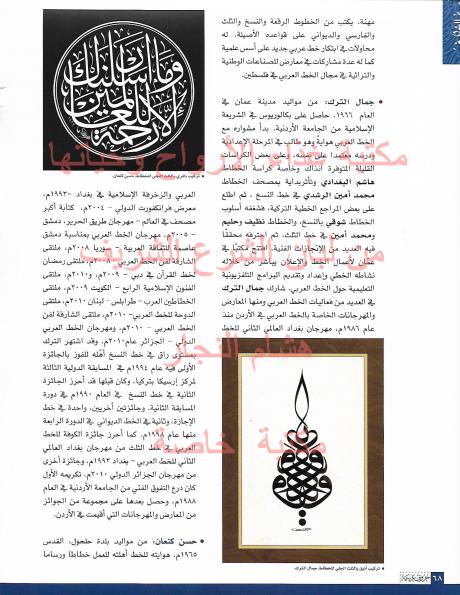 مهنة. يكتب من الخطوط الرقعة والنسخ والثلث
والفارسي والديواني على قواعده الأصيلة، له
محاولات في ابتكار خط عربي جديد على أسس علمية
كما له عدة مشاركات في معارض للصناعات الوطنية
والتراثية في مجال الخط العربي في فلسطين.
• جمال الترك: من مواليد مدينة عمان في
العام ١٩٦٦، حاصل على بكالوريوس في الشريعة
الإسلامية من الجامعة الأردنية. بدأ مشواره مع
الخط العربي هواية وهو طالب في المرحلة الإعدادية
ودرسه معتمدا على نفسه، وعلى بعض الكراسات
القليلة المتوفرة آنذاك وخاصة كراسة الخطاط
هاشم البغدادي وتأثر بداية بمصحف الخطاط
محمد أمين الرشدي في خط النسخ، ثم اطلع
على بعض المراجع الخطية التركية، فشغفه أسلوب
الخطاط شوقي بالنسخ، والخطاط نظيف وحليم
ومحمد أمين في خط الثلث، ثم احترفه محققا
فيه العديد من الإنجازات الفنية. افتتح مكتبا في
عمان لأعمال الخط والإعلان يباشر من خلاله
نشاطه الخطي وإعداد وتقديم البرامج التلفزيونية
التعليمية حول الخط العربي. شارك جمال الترك
في العديد من فعاليات الخط العربي ومنها المعارض
والمهرجانات الخاصة بالخط العربي في الأردن منذ
عام ١٩٨٦م، مهرجان بغداد العالمي الثاني للخط
• تركيب أنيق بالثلث الجلي للخطاط جمال الترك
وما أرسلناك إلا رحمة للعالمين
• تركيب دائري بالثلث الجلي للخطاط حسن كنعان
العربي والزخرفة الإسلامية في بغداد -١٩٩٣م،
معرض فرانكفورت الدولي - ٢٠٠٤م، كتابة أكبر
مصحف في العالم - مهرجان طريق الحرير، دمشق
- ٢٠٠٥م، مهرجان الخط العربي بمناسبة دمشق
عاصمة للثقافة العربية - سوريا ٢٠٠٨م، ملتقى
الشارقة لفن الخط العربي -٢٠٠٨م، ملتقى رمضان
لخط القرآن في دبي - ٢٠٠٩م، و٢٠١٠م، ملتقى
الفنون الإسلامية الرابع - الكويت ٢٠٠٩م، ملتقى
الخطاطين العرب - طرابلس - لبنان ٢٠١٠م، ملتقى
الدوحة للخط العربي -٢٠١٠م، ملتقى الشارقة لفن
الخط العربي - ٢٠١٠م، ومهرجان الخط العربي
الدولي - الجزائر عام ٢٠١٠م. وقد اشتهر الترك
بمستوى راق في خط النسخ أهله للفوز بالجائزة
الأولى فيه عام ١٩٩٤م في المسابقة الدولية الثالثة
لمركز إرسيكا بتركيا، وكان قبلها قد أحرز الجائزة
الثانية في خط النسخ في العام ١٩٩٠م في دورة
المسابقة الثانية. وجائزتين أخريين، واحدة في خط
الإجازة، وثانية في الخط الديواني في الدورة الرابعة
منها عام ١٩٩٨م. كما أحرز جائزة الكوفة للخط
العربي في خط الثلث من مهرجان بغداد العالمي
الثاني للخط العربي - بغداد ١٩٩٣م، وجائزة أخرى
من مهرجان الجزائر الدولي ٢٠١٠م. تكريمه الأول
كان درع التفوق الفني من الجامعة الأردنية في العام
١٩٨٨م، وحصل بعدها على مجموعة من الجوائز
من المعارض والمهرجانات التي أقيمت في الأردن.
• حسن كنعان: من مواليد بلدة حلحول، القدس
١٩٦٥م. هوايته للخط أهلته للعمل خطاطا ورساما
٦٨ حروف عربية
مكتبة غذاء الأرواح وحياتها
هشام النجار
مكتبة خاصة